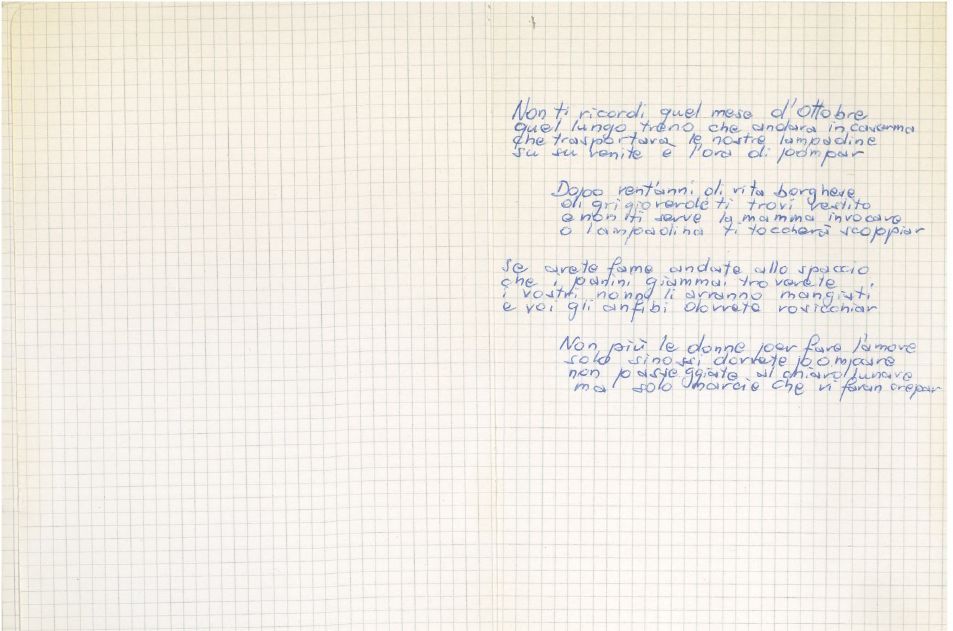 Non ti ricordi quel mese d'ottobre
quel lungo treno che andava in caserma
che trasportava le nostre lampadine
su su venite è l'ora di pompar
Dopo vent'anni di vita borghese
di grigioverde ti trovi vestito
e non ti serve la mamma invocare
o lampadina ti toccherà scoppiar
se avete fame andate allo spaccio
che i panini giammai troverete
i vostri nonni li avranno mangiati
e voi gli anfibi dovrete rosicchiar
Non più le donne per fare l'amore
solo sinossi dovrete pompare
non passeggiate al chiaro lunare
ma solo marcie che vi faran crepar